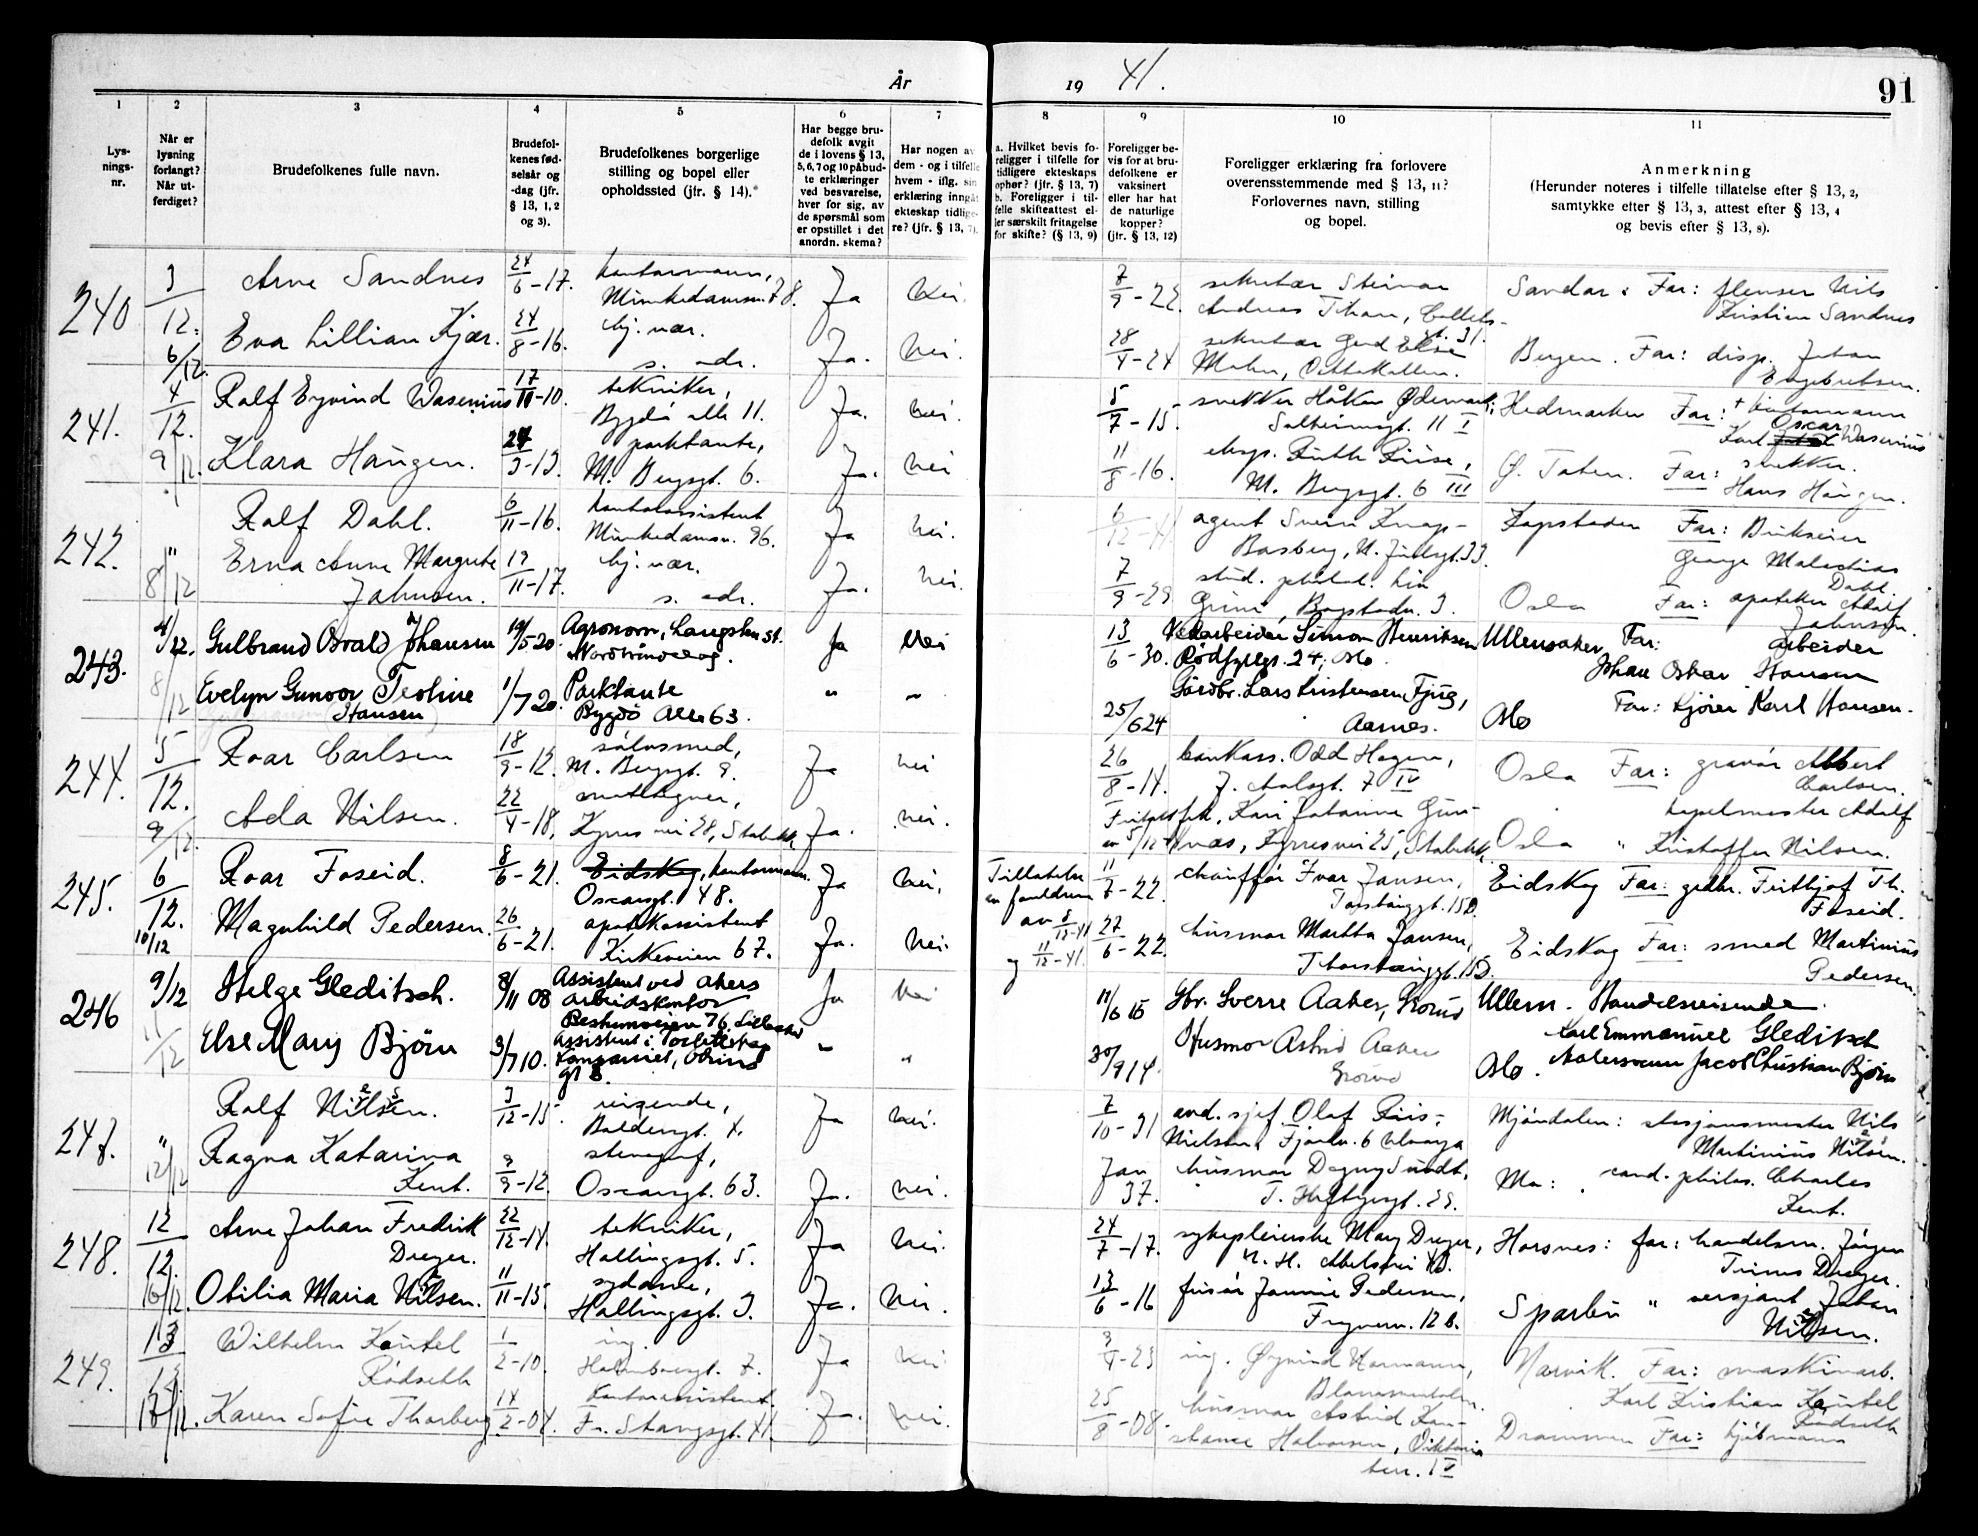 År 19 41.
91
1
Lys-
nings-
nr.
2
Når er
lysning
forlangt?
Når ut-
ferdiget?
3
Brudefolkenes fulle navn.
4
Brudefol-
kenes fød-
selsår og
-dag (jfr.
§ 13, 1, 2
og 3).
5
Brudefolkenes borgerlige
stilling og bopel eller
opholdssted (jfr. § 14).
6
Har begge bru-
defolk avgit
de i lovens § 13,
5, 6, 7 og 10 påbud-
te erklæringer
ved besvarelse,
hver for sig, av
de spørsmål som
er opstillet i det
anordn. skema?
7
Har nogen av
dem - og i tilfelle
hvem - iflg. sin
erklæring inngåt
ekteskap tidlige-
re? (jfr. § 13, 7).
8
a. Hvilket bevis fo-
religger i tilfelle for
tidligere ekteskaps
ophør? (jfr. § 13, 7)
b. Foreligger i til-
felle skifteattest el-
ler særskilt fritagelse
for skifte? (§ 13, 9)
9
Foreligger be-
vis for at bru-
defolkene er
vaksinert
eller har hat
de naturlige
kopper?
(jfr. § 13, 12)
10
Foreligger erklæring fra forlovere
overensstemmende med § 13, 11?
Forlovernes navn, stilling
og bopel.
11
Anmerkning
(Herunder noteres i tilfelle tillatelse efter § 13, 2,
samtykke efter § 13, 3, attest efter § 13, 4
og bevis efter § 13, 8).
240 3/12. Arne Sandnes 24/6-17. kontormann, Ja Nei. 7/9-22. sekretær Steinar Sandar: Far: flenser Nils
Munkedamsv. 78. Andreas Kristian Sandnes
6/12. Eva Lillian Kjær. 24/8-16. hj. vær. Ja. Nei. 28/4-24 sekretær Gerd Else Bergen. Far: disp. Johan
s. adr. Engebretsen.
241. 4/12. Ralf Eyvind Wasenius 17/11-10. tekniker, Ja. Nei. 5/7-15 snekker Håkon Hedmarken Far: + kontormann
Bygdø alle 11. 11 I Karl Oscar Wasenius
9/12. Klara Haugen. 3-13. parktante, Ja. Nei 11/8-16. eksp. Ruth Riise, Ø. Toten. Far: snekker.
M. Bergsgt. 6. M. Bergsgt. 6 III Hans Haugen.
242. " Rolf Dahl. 6/11-16. kontorassistent Ja Nei. 6/12-41 agent Svein Knap- Kapstaden Far:
Munkedamsv. 96. George Malachias
8/12 Erna Anne Margrete 19/11-17. hj. vær. Ja. Nei. 7/9-29 stud. philol. Liv Dahl.
Jahnsen. s. adr. Bogstadv. 3. Oslo Far: apoteker Adolf
Jahnsen.
243. 4/12. Gulbrand Osvald Johansen 19/5-20. Agronom, Langsten st. Ja Nei 13/6-30. Simon Henriksen Ullensaker Far: arbeider
Nordtrøndelag. Rødfyllgt. 24, Oslo. Johan Oskar Hansen
8/12 Evelyn Gunvor Teoline 1/7 20. Parktante " " 25/6 24 Gårdbr. Lars Kristensen Fjug, Oslo Far: kjører Karl Hansen.
Hansen Bygdø Alle 63. Aarnes.
244. 5/12. Roar Carlsen 18/9-12. sølvsmed, Ja nei 26/8-14. bankass. Odd Hagen, Oslo Far: gravør Albert
M. Bergsgt. 9. 7 IV Carlsen.
9/12. Ada Nilsen. 22/4-18, Ja. nei. Kari Johanne Oslo kapelmester Adolf
Kyrres vei 28, Stabekk Kyrresvei 25, Stabekk. " Kristoffer Nilsen.
245. 6/12. Roar Foseid. 8/6-21. Eidskog, kontormann. Ja Nei. Tillatelse 11/7-22. chauffør Ivar Jansen, Eidskog Far: grdbr. Fritjof Th.
Oscarsgt. 48. Torstængt. 15D. Foseid.
10/12 Magnhild Pedersen. 26/6-21. apotekassistent Ja. Nei. av 8/12-41 27/6-22. husmor Martha Jansen, Eidskog Far: smed Martinius
Kirkeveien 67. og 11/12-41. Thorstængt. 15D. Pedersen.
246 9/12 Helge Gleditsch. 8/11 08 Assistent ved Akers Ja Nei 11/6 15 Gbr. Sverre Aaker, Grorud Ullern. Handelsreisende
arbeidskontor Karl Emmanuel Gleditsch
Bestumveien 76, Lilleaker
11/12 Else Mary Björn 3/7 10. Assistent i " " 30/9 14 Husmor Astrid Aaker Oslo. Jacob Christian Björn
Kompaniet, Grorud
gt 8.
247. " Ralf Nilsen. 3/12-15. reisende, Ja nei. 7/10-31 avd. sjef Olaf Riis- Mjøndalen: stasjonsmester Nils
Baldersgt. 4. Nielsen, Martinius Nilsen.
12/12 Ragna Katarina 9/9-12. stenograf, Ja. nei. Jan 37. husmor Dagny Sundt, Ma: cand. philos. Charles
Kent. Oscarsgt. 63. T. Heftyesgt. 29. Kent.
248. 12/12. Arne Johan Fredrik 22/12-14. tekniker, Ja Nei. 24/7-17. sykepleierske Mary Dreyer, Horsnes: far: handelsm. Jørgen
Dreyer. Hallingsgt. 5. N. H. Abelsvei Dreyer.
16/12. Otilia Maria Nilsen. 11/11-15. sydame, Ja. Nei. 13/6-16 frisør Jannie Pedersen, Sparbu " sersjant Johan
Hallingsgt. 3. Frognerv. 12 b. Nilsen.
249. 13/12. Wilhelm Kantel 1/2-10. ing. Ja Nei 4-23 ing. Øyvind Normann, Narvik. Far: maskinarb.
Rødseth Holmboesgt. 7. Karl Kristian Kantel
Rødseth
Karen Sofie Thorberg 14/2-04. kontorassistent. Ja. nei. 25/8-08. husmor Astrid Kon- Drammen Far: kjøbmann
Fr. Stangsgt. 41. stance Halvorsen, Viktoria
terr. 1 V